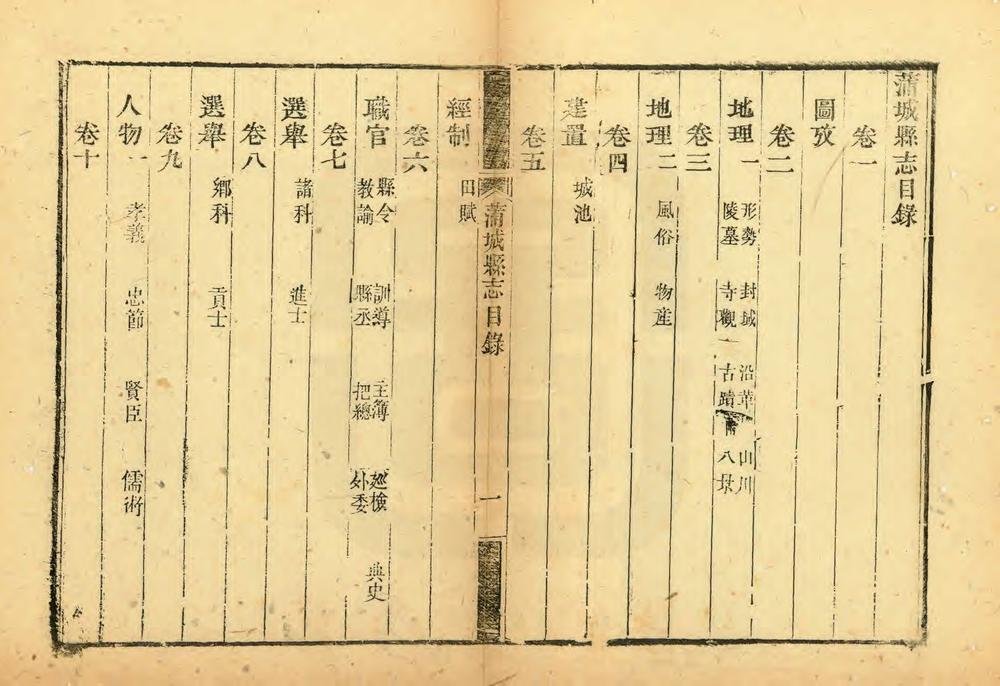 蒲城縣志目錄
卷一
圖攷
卷二
地理一 形勢 封域 沿革 山川
陵墓 寺觀 古蹟 八景
卷三
地理二 風俗 物產
卷四
建置 城池
卷五
蒲城縣志目錄 一
經制 田賦
卷六
職官 縣令 訓導 主簿 廵檢 典史
教諭 縣丞 把總 外委
卷七
選舉 諸科 進士
卷八
選舉 鄉科 貢士
卷九
人物一 孝義 忠節 賢臣 儒術
卷十